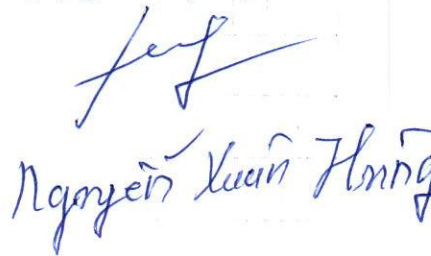 Nguyễn Xuân Hưng